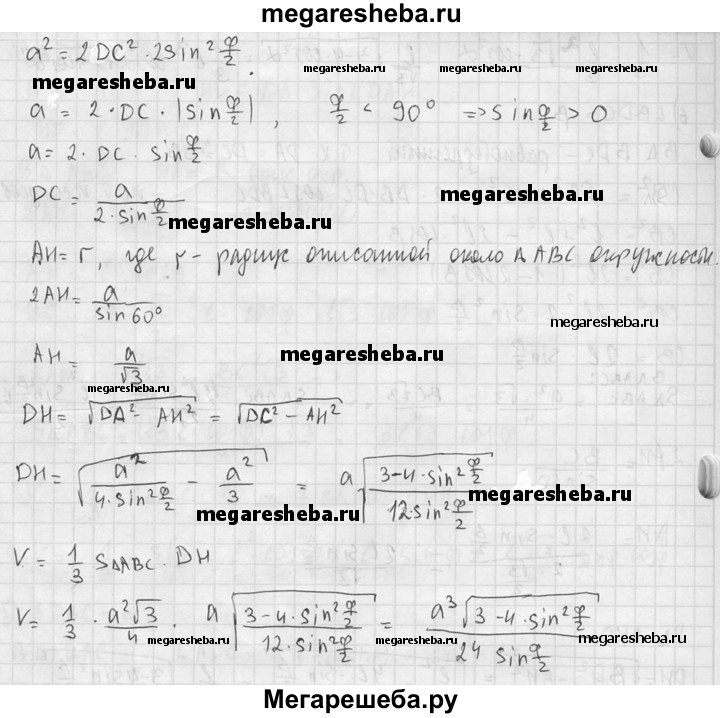 megaresheba.ru
a² = 2DC² · 2sin² φ/2.
megaresheba.ru megaresheba.ru megaresheba.ru
a = 2 · DC · |sin φ/2| , φ/2 < 90° ⇒ sin φ/2 > 0
a = 2 · DC · sin φ/2
megaresheba.ru
DC = a/(2 · sin φ/2)
megaresheba.ru
AH = r, где r - радиус описанной около Δ ABC окружности.
2AH = a/sin 60°
megaresheba.ru
AH = a/√3
megaresheba.ru
megaresheba.ru
DH = √(DA² - AH²) = √(DC² - AH²)
DH = √(a²/(4 · sin² φ/2) - a²/3) = a√((3 - 4 · sin² φ/2)/(12 · sin² φ/2))
megaresheba.ru
megaresheba.ru
V = 1/3 S ΔABC · DH
V = 1/3 · a²√3/4 · a√((3 - 4 · sin² φ/2)/(12 · sin² φ/2)) = a³√(3 - 4 · sin² φ/2)/(24 sin φ/2)
megaresheba.ru megaresheba.ru megaresheba.ru
Мегарешеба.ру